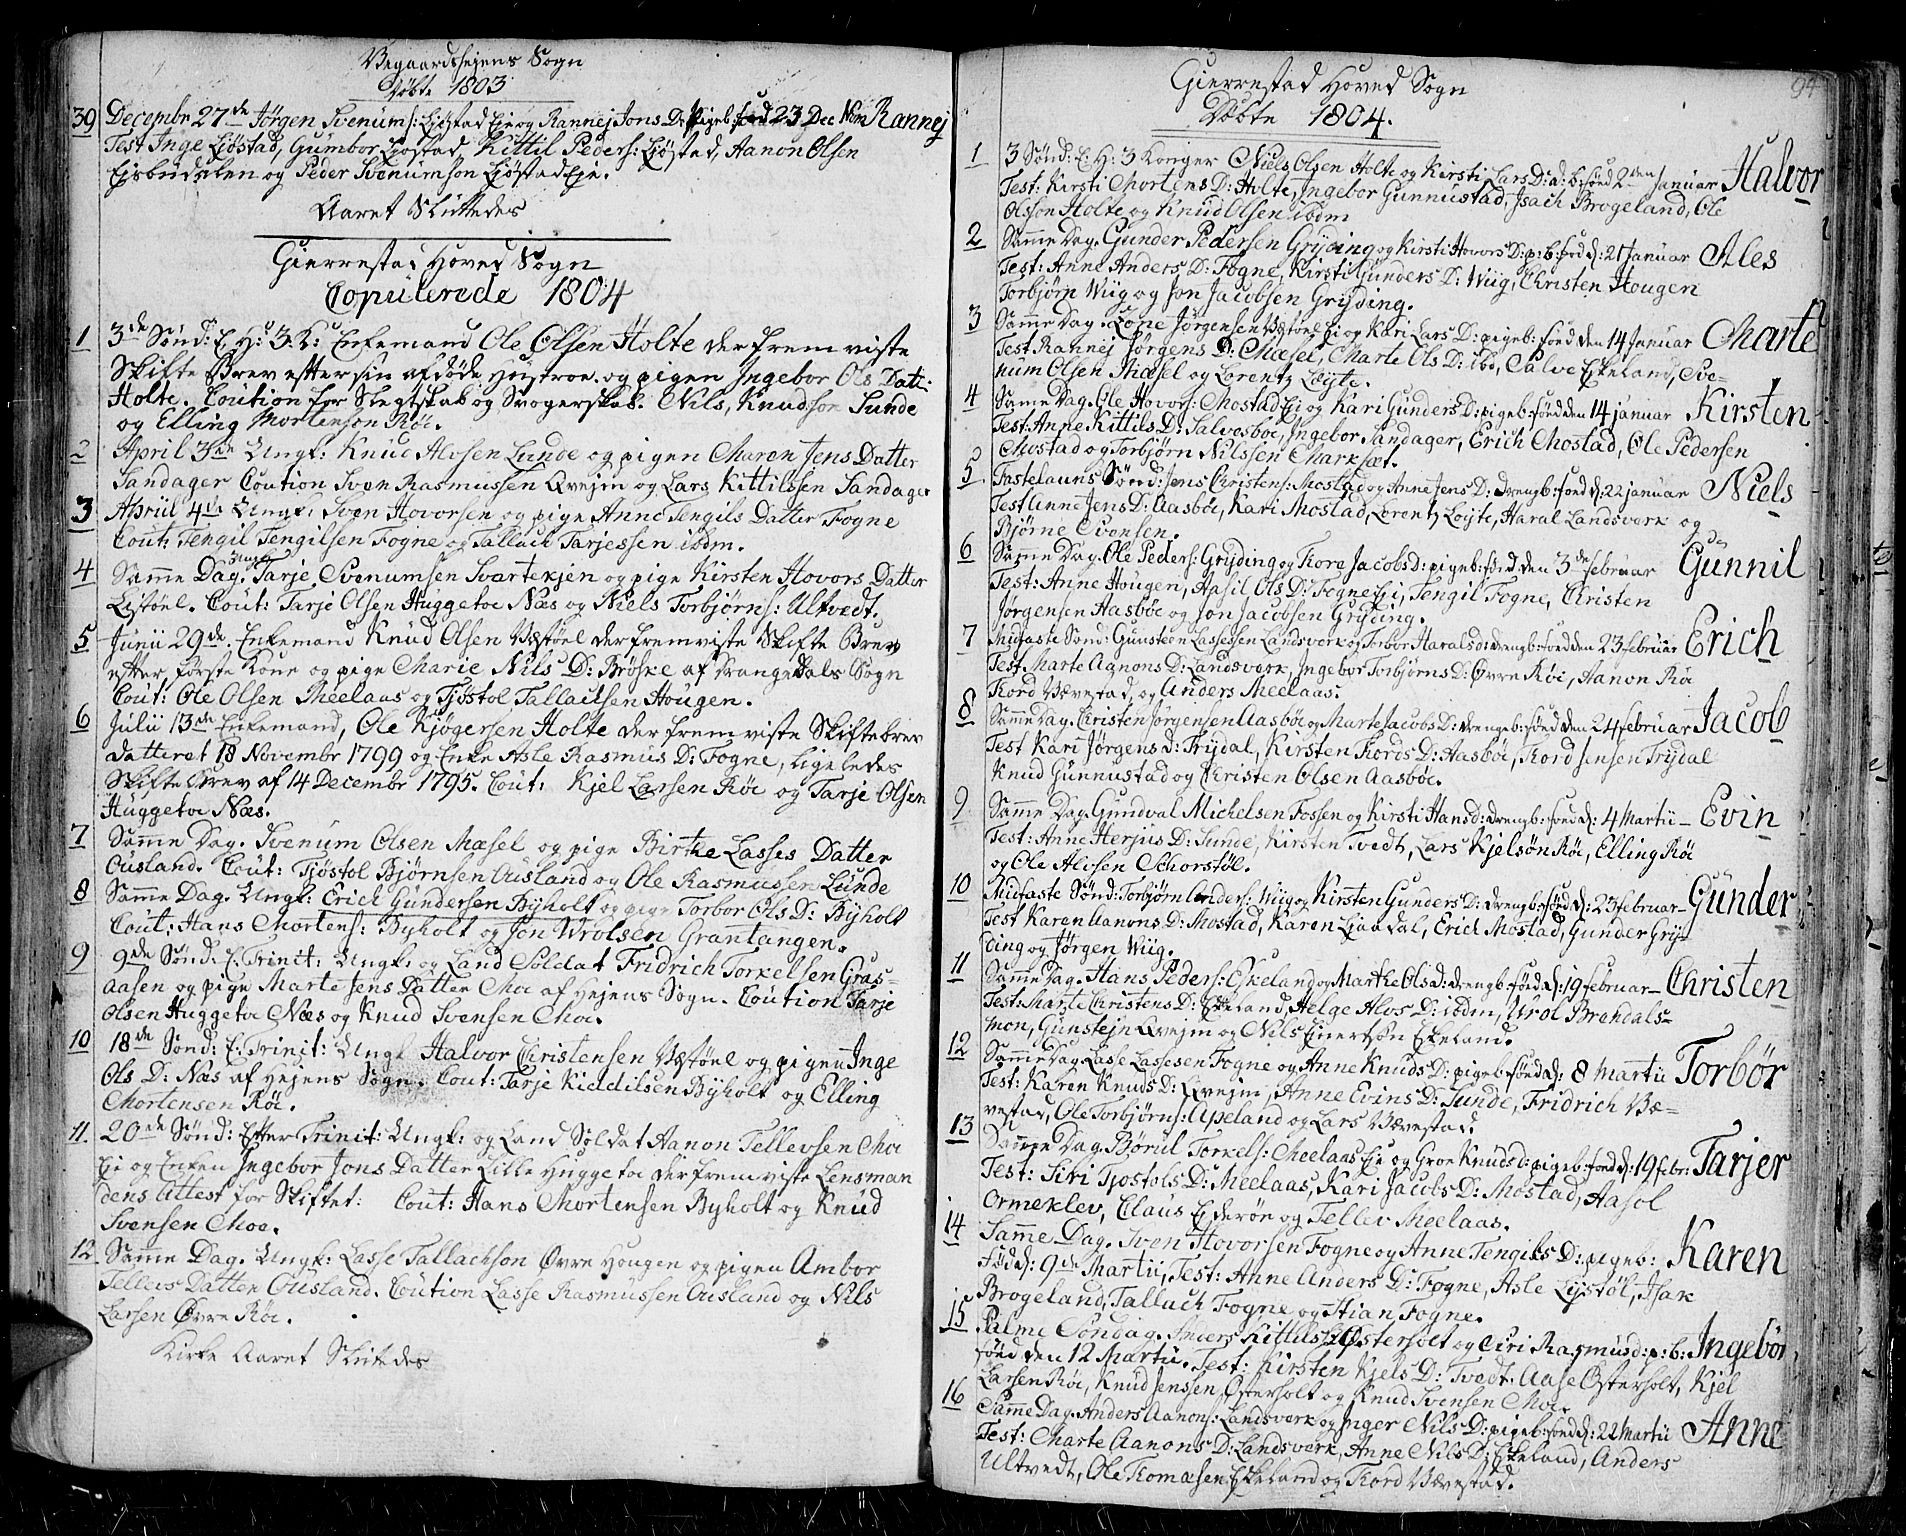 Vegaardsheiens Sogn
Døbte 1803
39 Decembr 27de Jørgen Svenums: Ljøstad Eje og Rannej Jons D: Pigeb: fød 23 Dec Nom Rannej
Test Inge Ljøstad, Gumbor Ljøstad, Kittil Peders: Ljøstad, Aanon Olsen
Ejsbudalen og Peder Svenumsøn Ljøstad Eje.
Aaret Sluttedes
Gierrestad Hoved Sogn
Copulerede 1804
1 3de Sønd: E. H: 3. K: Enkemand Ole Olsen Holte der fremviste
Skifte Brev efter sin afdøde Hustroe og pigen Ingebor Ols Datt:
Holte. Coution for Slegtskab og Svogerskab. Nils, Knudsøn Sunde
og Elling Mortensøn Røi.
2 April 3de Ungk: Knud Alvsen Lunde og pigen Maren Jens Datter
Sandager Coution Sven Rasmussen Qvejm og Lars Kittilssen Sandager
3 Apriil 4de Ungk: Sven Hovorsen og pige Anne Tengils Datter Fogne
Cout: Tengil Tengilsen Fogne og Tallach Tarjessen ibdm.
4 Samme Dag. Ungk: Tarje Svenumsen Svartekjen og pige Kirsten Hovors Datter
Listøel. Cout: Tarje Olsen Huggetoe Næs og Niels Torbjørns: Ultvedt.
5 Junii 29de. Enkemand Knud Olsen Væstøel der fremviste Skifte Brev
efter første Kone og pige Marie Nils D: Brøske af Drangedals Sogn
Cout: Ole Olsen Meelaas og Tjøstol Tallachsen Hougen.
6 Julii 13de Enkemand, Ole Kjøgersen Holte der fremviste Skiftebrev
datteret 18 Novembr 1799 og Enke Asle Rasmus D: Fogne, ligeledes
Skifte Brev af 14 Decembr 1795. Cout: Kjel Larsen Røi og Tarje Olsen
Huggetoe Næs.
7 Samme Dag. Svenum Olsen Mæsel og pige Birthe Lasses Datter
Ousland. Cout: Tjøstol Bjørnsen Ousland og Ole Rasmussen Lunde
8 Samme Dag. Ungk: Erich Gundersen Byholt og pige Torbor Ols D: Byholt
Cout: Hans Mortens: Byholt og Jon Wrolsen Grantangen.
9 9de Sønd. E. Trinit: Ungk: og Land Soldat Fridrich Torkelsen Graas=
aasen og pige Marte Jens Datter Moe af Hejens Sogn. Coution Tarje
Olsen Huggetoe Næs og Knud Svensen Moe.
10 18de Sønd: E: Trinit: Ungk Halvor Christensen Væstøel og pigen Inge
Ols D: Næs af Hejens Sogn. Cout: Tarje Kiddilsen Byholt og Elling
Mortensen Røi.
11 20de Sønd: Efter Trinit: Ungk: og Land Soldat Aanon Tellevsen Moe
Eje og Enken Ingebor Jons Datter Lille Huggetoe der fremviste Lensman
dens Attest for Skiftet: Cout: Hans Mortensen Byholt og Knud
Svensen Moe.
12 Samme Dag. Ungk: Lasse Tallachsøn Øvre Hougen og pigen Ambor
Tellevs Datter Ousland. Coution Lasse Rasmussen Ousland og Nils
Larsen Øvre Røi.
Kirke Aaret Sluttedes
94
Gierrestad Hoved Sogn
Døbte 1804.
1 3 Sønd: E: H: 3 Konger Niels Olsen Holte og Kirsti Lars D: d: b: føed 2den Januar Halvor
Test: Kirsti Mortens D: Holte, Ingebor Gunnustad, Isach Brogeland, Ole
Olssøn Holte og Knud Olsen ibdm
2 Samme Dag. Gunder Pedersen Gryding og Kirsti Hovors D: p: b: fød d: 21 Januar Ales
Test: Anne Anders D: Fogne, Kirsti Gunders D: Wiig, Christen Hougen
Torbjørn Wiig og Jon Jacobsen Gryding.
3 Samme Dag. Lone Jørgensen Væstøel Ej og Kari Lars D: pigeb: føed den 14 Januar Marte
Test Rannej Jørgens D: Mæsel, Marte Ols D: ibd, Salve Eskeland, Sve=
num Olsen Mæsel og Lorentz Løyte.
4 Samme Dag. Ole Hovors: Mostad Ej og Kari Gunders D: pigeb: føed den 14 januar Kirsten
Test: Anne Kittils D: Salvosboe, Ingebor Sandager, Erich Mostad, Ole Pedersen
Mostad og Torbjørn Nilssen Marksæt.
5 Fastelauns Sønd: Jens Christens: Mostad og Anne Jens D: drengb: føed d: 22 januar Niels
Test Anne Jens D: Aasbøe, Kari Mostad, Lorentz Løyte, Haral Landsverk og
Bjørne Evensen.
6 Samme Dag. Ole Peders: Gryding og Tore Jacobs d: pigeb: fød den 3de februar Gunnil
Test: Anne Hougen, Aasil Ols D: Fogne Ej, Tengil Fogne, Christen
Jørgensen Aasbøe og Jon Jacobsen Gryding.
7 Midfaste Sønd: Gunsteen Lassesen Landsverk og Torbor Harals d: drengb: fød den 23 februar Erich
Test Marte Aanons D: Landsverk, Ingebor Torbjørns D: Øvre Røi, Aanon Røi
Tord Vævestad, og Anders Meelaas.
8 Samme Dag. Christen Jørgensen Aasbøe og Marte Jacobs D: drengeb: føed den 24 februar Jacob
Test Kari Jørgens d: Trydal, Kirsten Tords D: Aasbøe, Tord Jensen Trydal
Knud Gunnustad og Christen Olsen Aasbøe.
9 Samme Dag. Gundval Michelsen Fossen og Kirsti Hans d: drengb: føed d: 4 Martii Evin
Test: Anne Herjus D: Sunde, Kirsten Tvedt, Lars Kjelsøn Røi, Elling Røi
og Ole Alvsen Schorstøl.
10 Midfaste Sønd: Torbjørn Anders: Wiig og Kirsten Gunders D: drengb: føed d: 23 februar Gunder
Test Karen Aanons D: Mostad, Karen Ljaadal, Erich Mostad, Gunder Gry=
ding og Jørgen Wiig.
11 Samme Dag. Hans Peders: Eskeland og Marthe Ols d: drengb: føed d: 19 februar Christen
Test: Marte Christens D: Eskeland, Helge Alvs D: ibdm, Wrol Brendals=
mon, Gunstejn Qvejm og Nils Ejvertsøn Eskeland.
12 Samme Dag. Lasse Lassesen Fogne og Anne Knuds D: pigeb: føed d: 8 Martii Torbør
Test: Karen Knuds D: Qvejm, Anne Evins D: Sunde, Fridrich Væ=
vestad, Ole Torbjørns: Apeland og Lars Vævestad.
13 Samme Dag. Børul Torkels: Meelaas Eje og Groe Knuds D: pigeb: føed d: 19 febr: Tarjer
Test: Siri Tjostols D: Meelaas, Kari Jacobs D: Mostad, Aasol
Ormeklev, Claus Ejderøn og Tellev Meelaas.
14 Samme Dag. Sven Hovorsen Fogne og Anne Tengils D: pigeb: Karen
fød d: 9de Martii, Test: Anne Anders D: Fogne, Asle Lystøl, Isak
Brogeland, Tallach Fogne og Stian Fogne.
15 Palme Søndag. Anders Kittilsen Østerholt og Siri Rasmus d: p: b: Ingebor
føed den 12 Martii. Test: Kirsten Kjels D: Tvedt. Aase Østerholt, Kjel
Larsen Røi, Knud Jenssen, Østerholt og Knud Svensen Moe.
16 Samme Dag. Anders Aanons: Landsverk og Inger Nils D: pigeb: føed d: 22 Martii Anne
Test: Marte Aanons D: Landsverk, Anne Nils D: Eskeland, Anders
Ultvedt, Ole Tomasen Eskeland og Tord Vævestad.